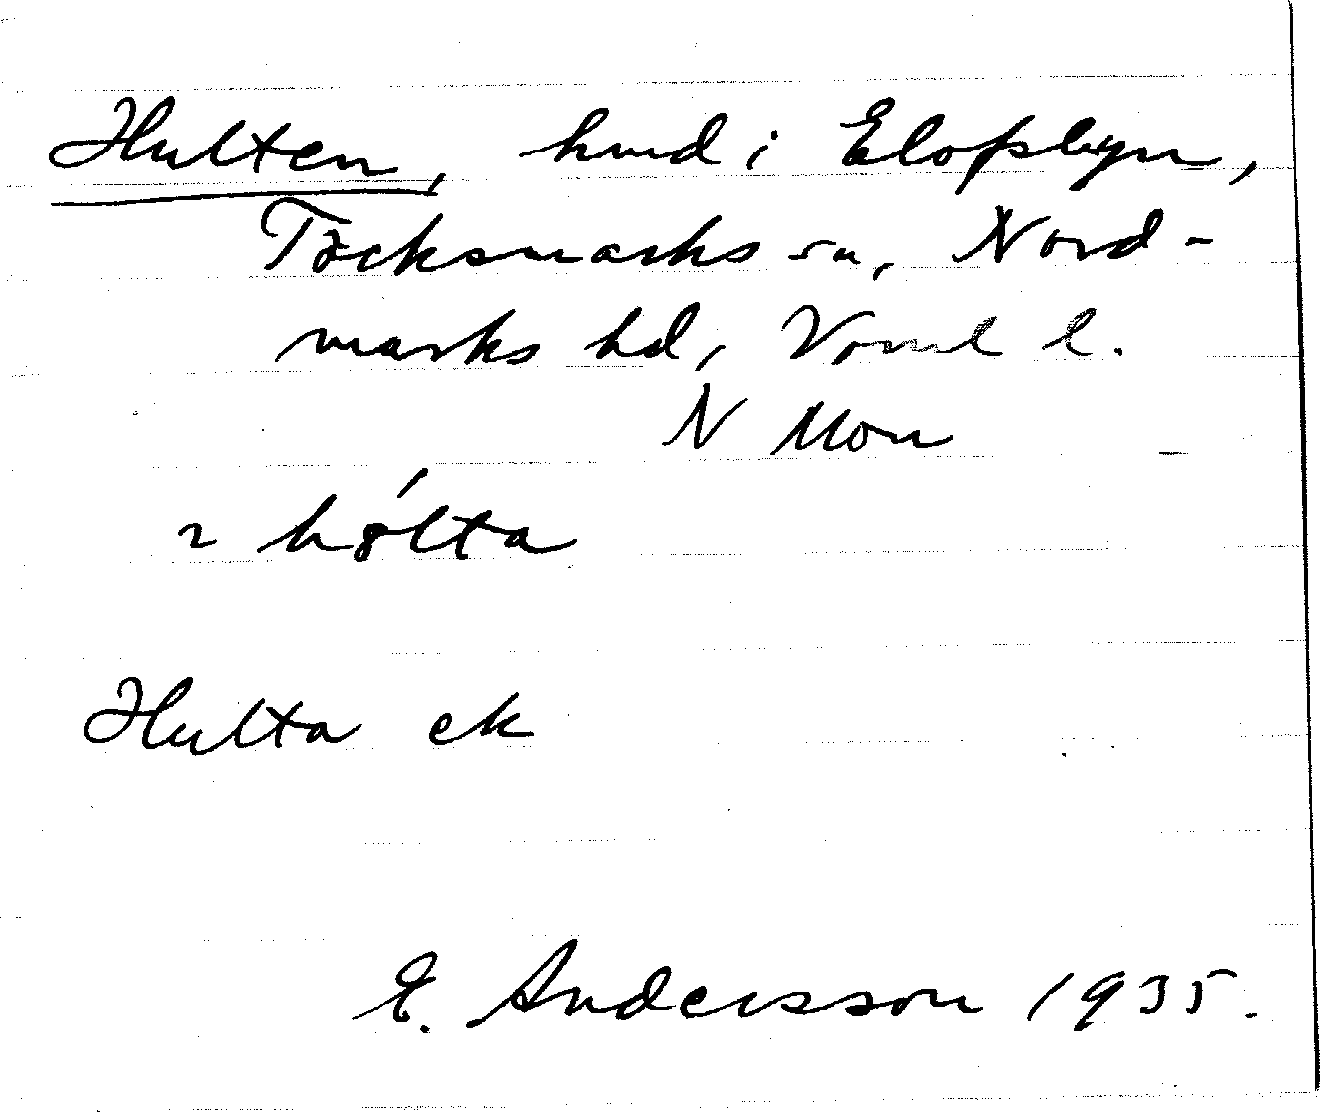 Hulten, hmd i Elofsbyn,
Töcksmarks sn, Nord-
marks hd, Värml l.
N Mon
~ hó̤lta
Hulta ek
E. Andersson 1935.